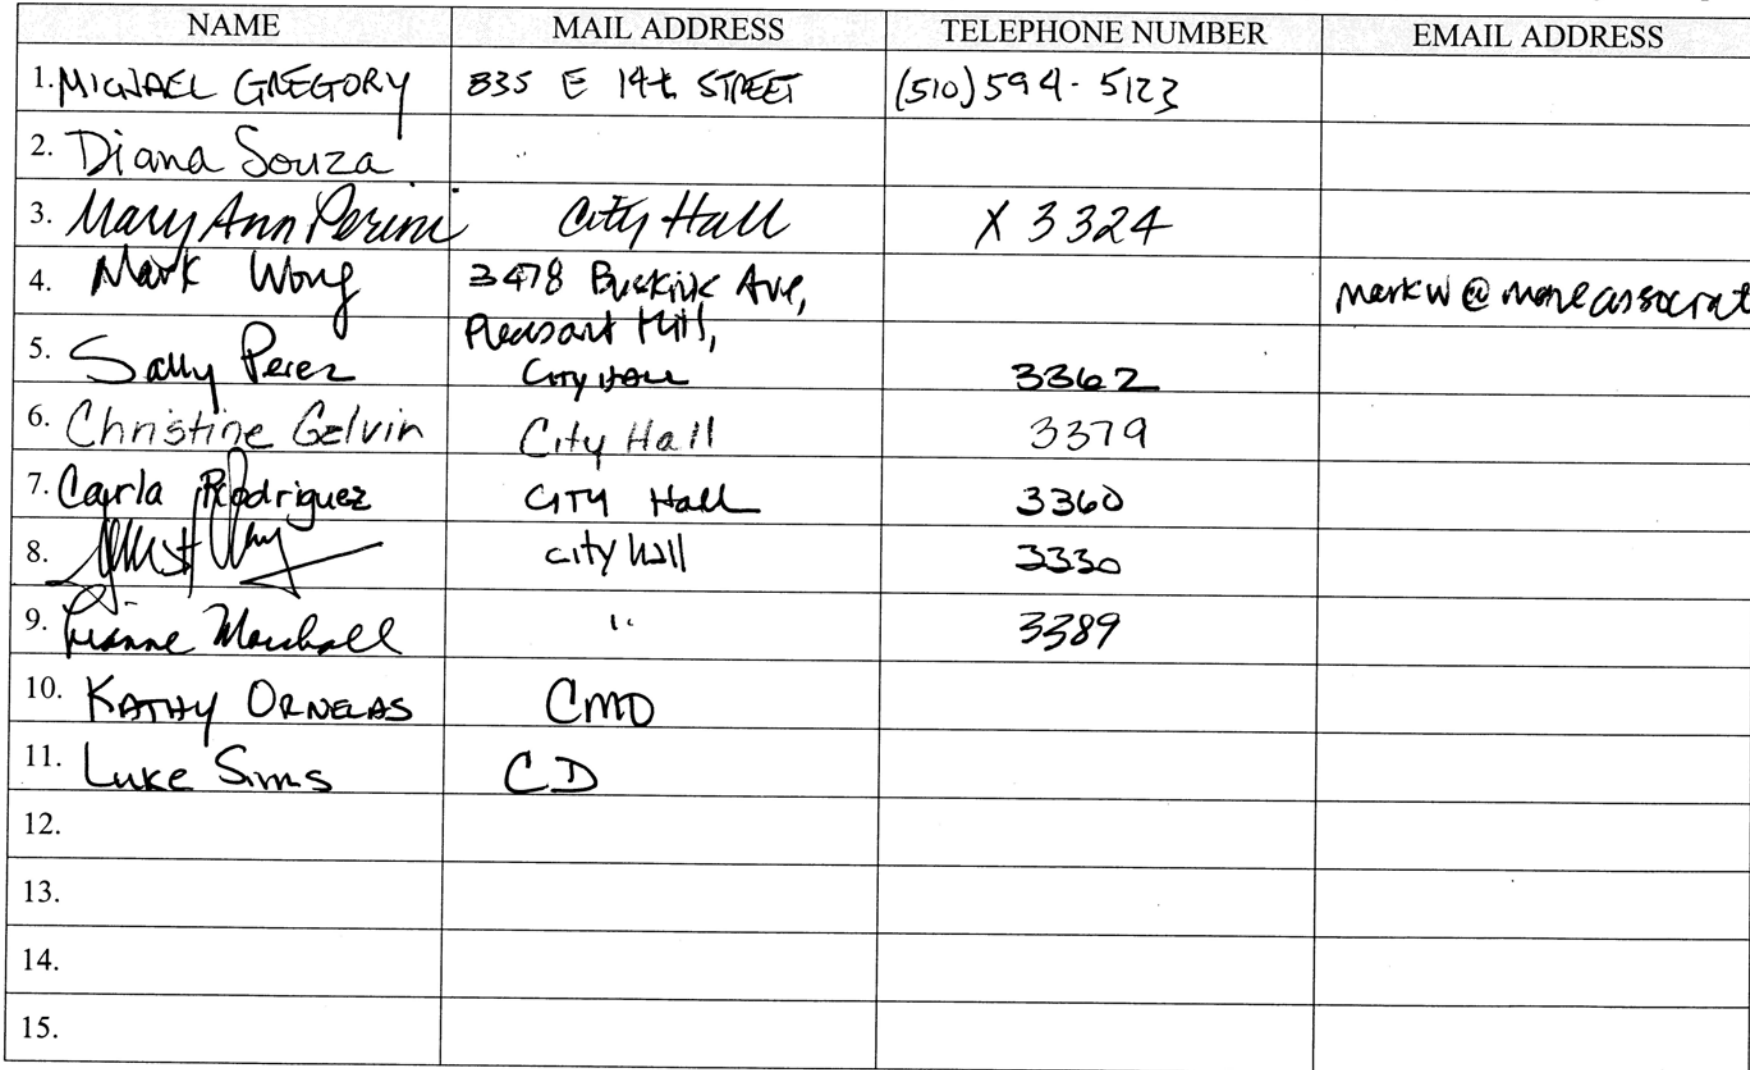 NAME MAIL ADDRESS TELEPHONE NUMBER EMAIL ADDRESS
1. MICHAEL GREGORY 835 E 14th STREET (510) 594-5123
2. Diana Souza
3. Mary Ann Perini City Hall X 3324
4. Mark Wong 3478 Buskirk Ave, markw@
Pleasant Hill,
5. Sally Perez City Hall 3362
6. Christine Galvin City Hall 3379
7. Carla Rodriguez CITY Hall 3360
8. city hall 3330
9. Marshall " 3389
10. KATHY ORNELAS CMO
11. Luke Sims CD
12.
13.
14.
15.